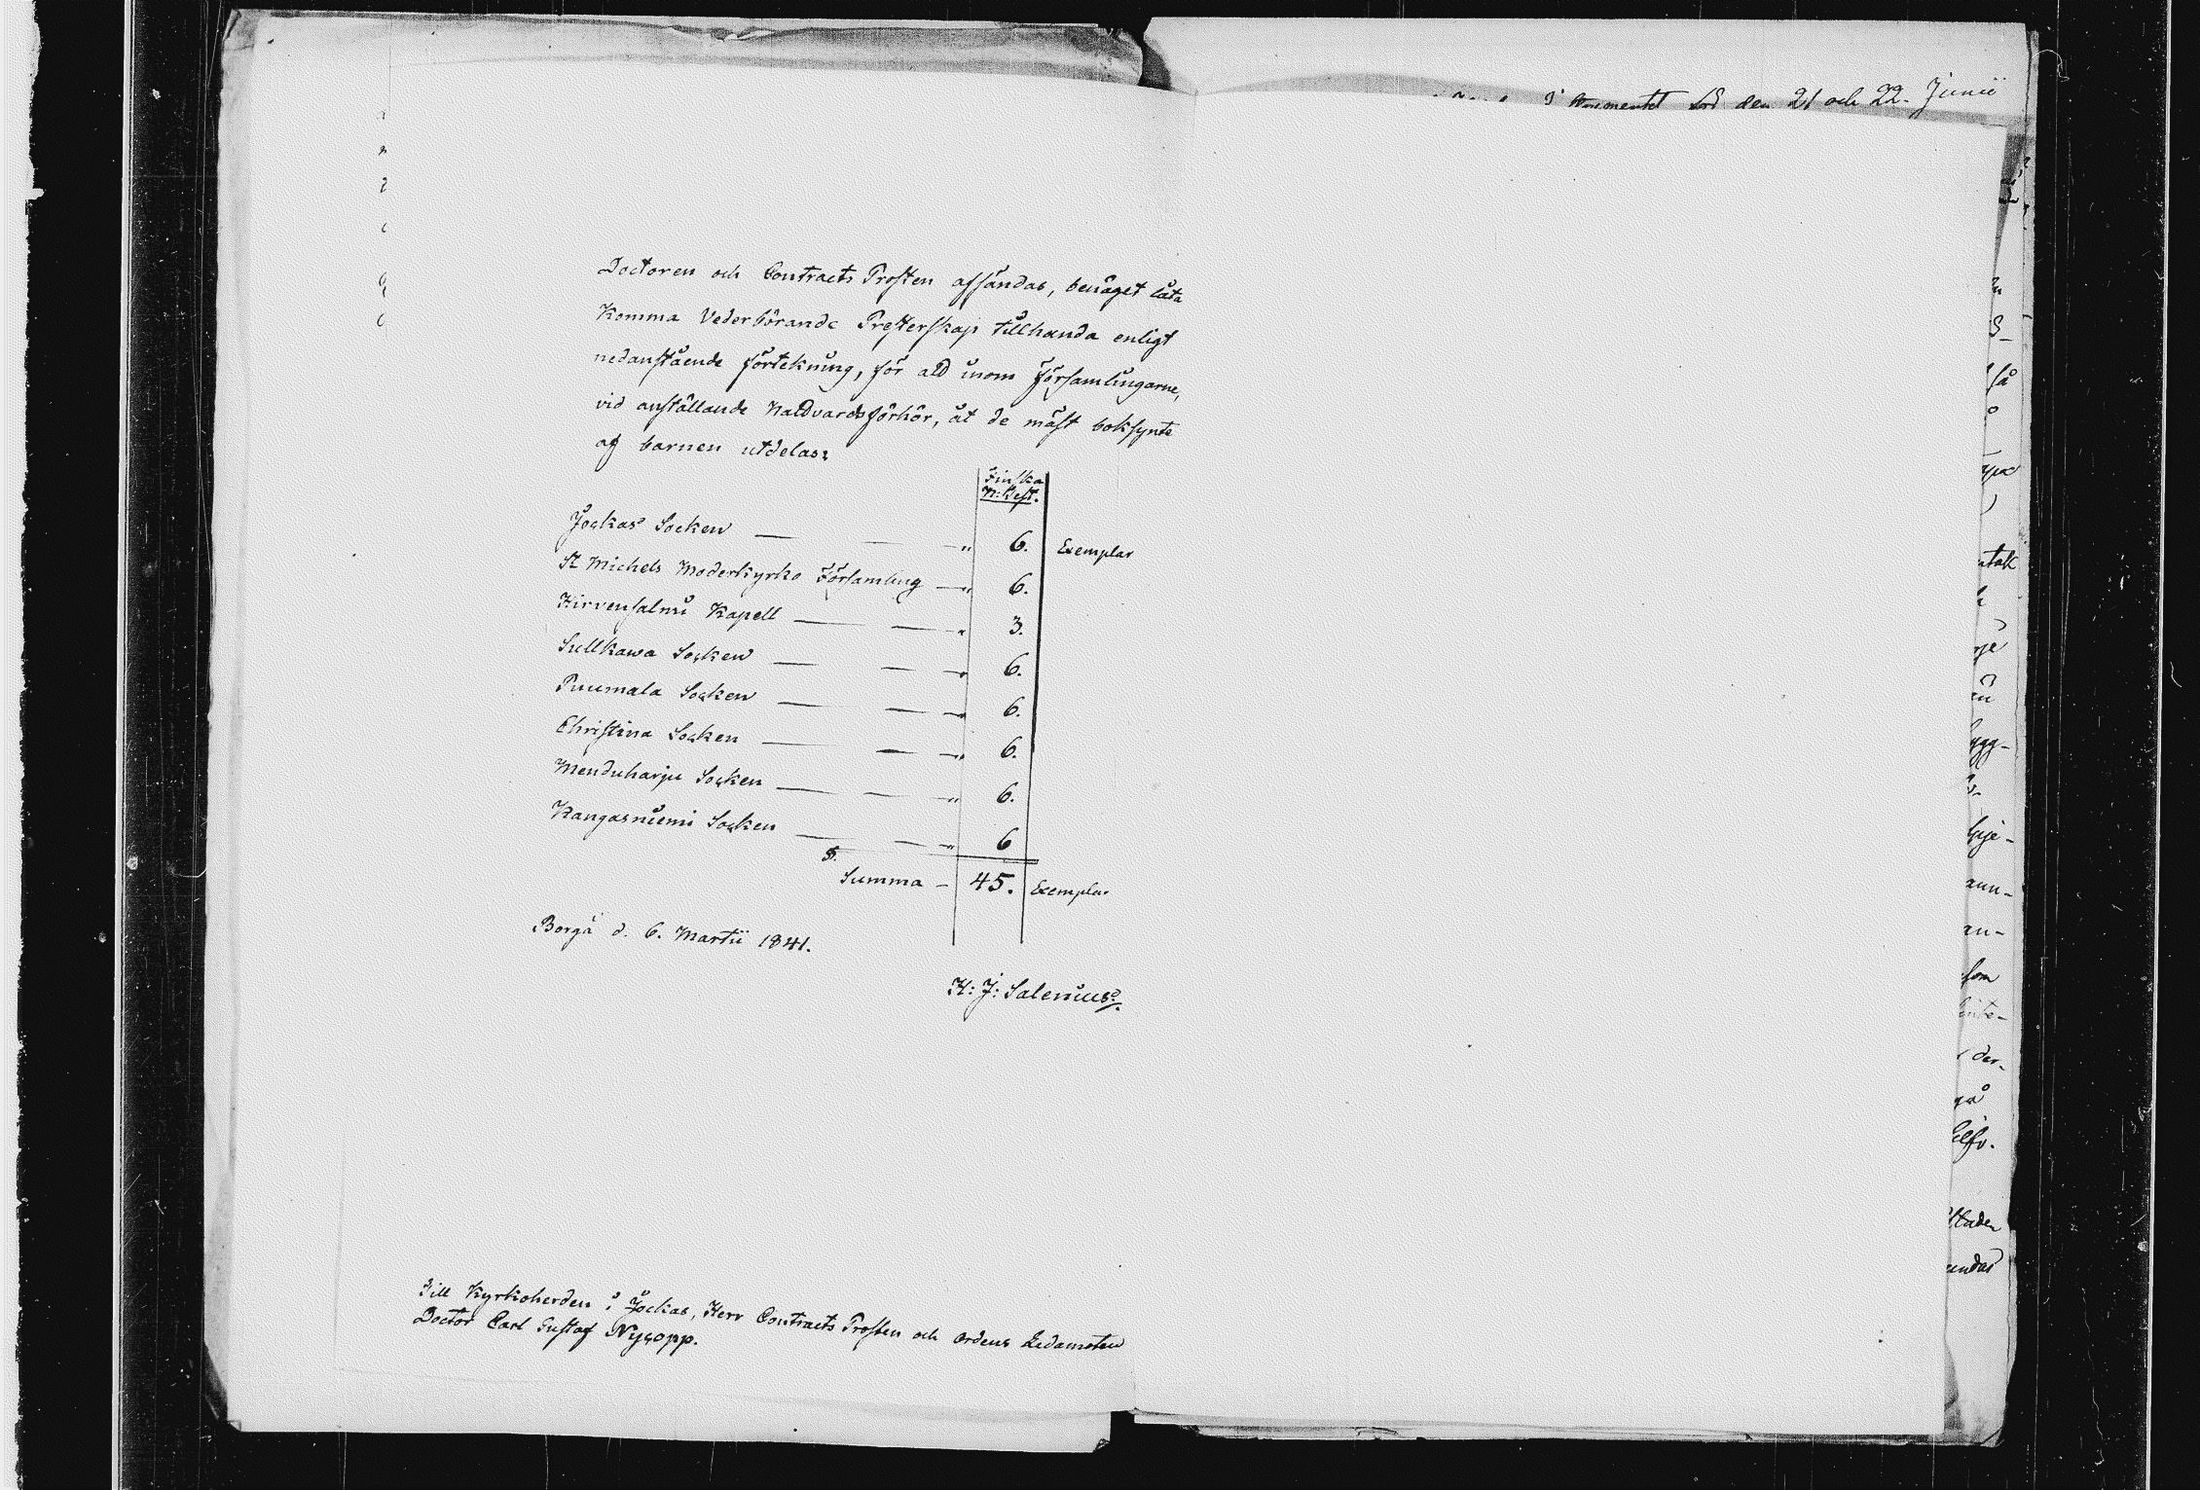 Testamentet för den 21 och 22. Junii
Doctoren och Contracts Prosten afsändas, benäget låta
Komma Vederbörande Presterskap tillhanda enligt
nedanstående förtekning, för att inom Församlingarne,
vid anställande Nattvardsförhör, åt de mäst boksynte
af barnen utdelas:
Finska
N: Test.
Jockas Socken — — " 6. Exemplar
St Michels Moderkyrko Församling — " 6.
Hirvensalmi Kapell — — " 3.
Sullkawa Socken — — " 6.
Puumala Socken — — " 6.
Christina Socken — — " 6.
Menduharju Socken — — " 6.
Kangasniemi Socken — — " 6
S.
Summa — 45. Exemplar
Borgå d. 6. Martii 1841.
H: J: Salenius
Till Kyrkoherden i Jockas, Herr Contracts Prosten och Ordens Ledamoten
Doctor Carl Gustaf Nycopp.